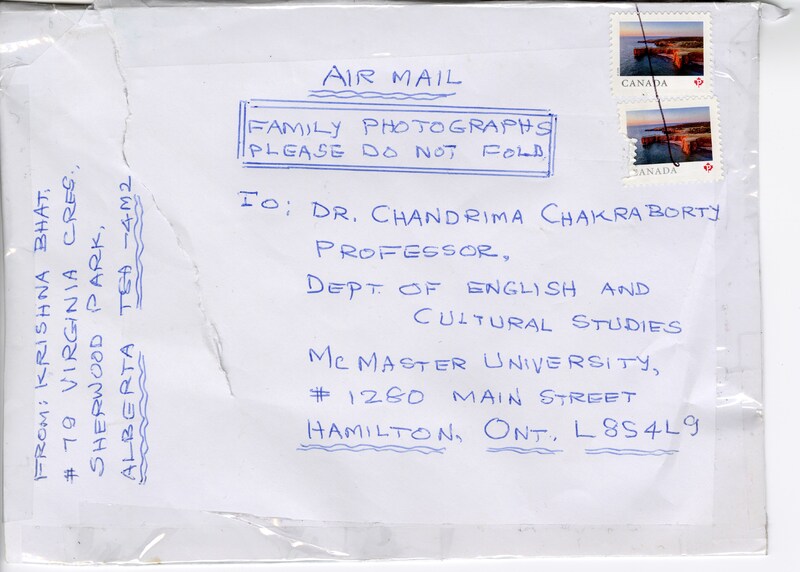 AIR MAIL
CANADA
FAMILY PHOTOGRAPHS
PLEASE DO NOT FOLD
CANADA
TO: DR. CHANDRIMA CHAKRABORTY
PROFESSOR,
DEPT. OF ENGLISH AND
CULTURAL STUDIES
MCMASTER UNIVERSITY,
# 1280 MAIN STREET
HAMILTON, ONT., L8S4L9
FROM: KRISHNA BHAT.
# 79 VIRGINIA CRES.,
SHERWOOD PARK,
ALBERTA T8A-4M2